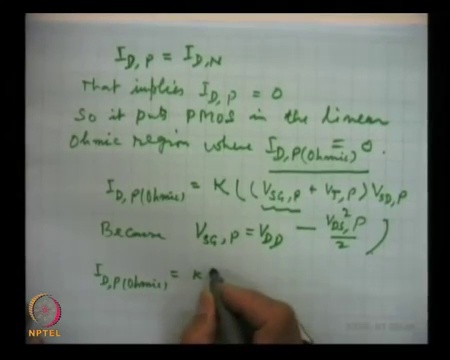 I_D,P = I_D,N
That implies I_D,P = 0
So it puts PMOS in the linear
Ohmic region where I_D,P(Ohmic) = 0.
I_D,P(Ohmic) = K((V_SG,P + V_T,P) V_SD,P
Because V_SG,P = V_DD — V_DS,²P/2)
I_D,P(Ohmic) = K
NPTEL